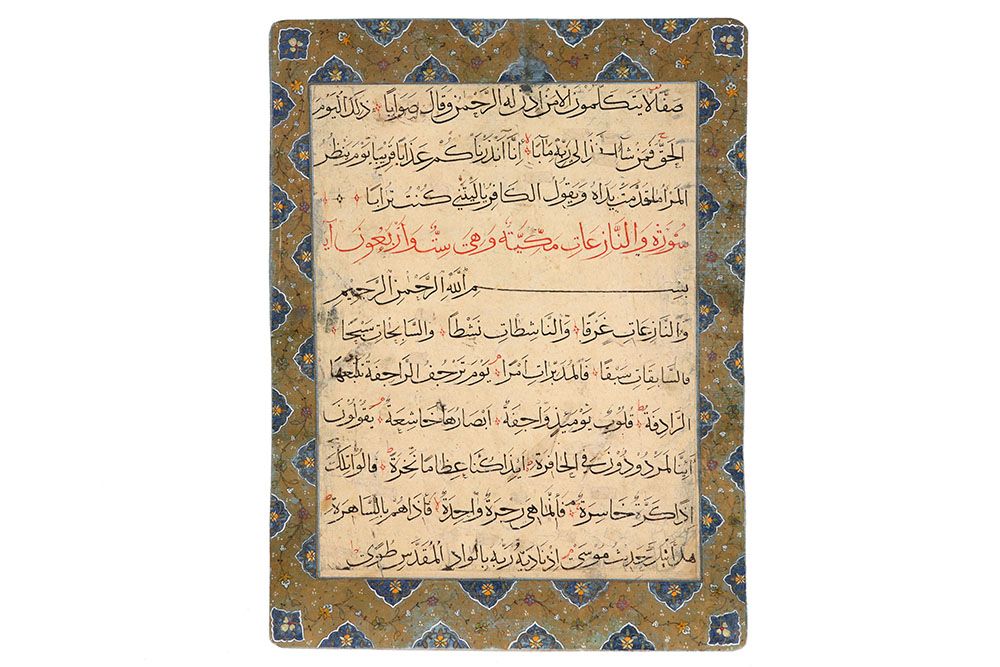 صفا لا يتكلمون الا من اذن له الرحمن وقال صوابا ذلك اليوم
الحق فمن شآ اتخذ الى ربه مآبا انآ انذرناكم عذابا قريبا يوم ينظر
المرء ما قدمت يداه ويقول الكافر ياليتني كنت ترابا
سورة والنازعات مكية وهي ست واربعون آية
بسم الله الرحمن الرحيم
والنازعات غرقا والناشطات نشطا والسابحات سبحا
فالسابقات سبقا فالمدبرات امرا يوم ترجف الراجفة تتبعها
الرادفة قلوب يومئذ واجفة ابصارها خاشعة يقولون
ائنا لمردودون في الحافرة ائذا كنا عظاما نخرة قالوا تلك
اذا كرة خاسرة فانما هي زجرة واحدة فاذا هم بالساهرة
هل اتيك حديث موسى اذ ناديه ربه بالواد المقدس طوى